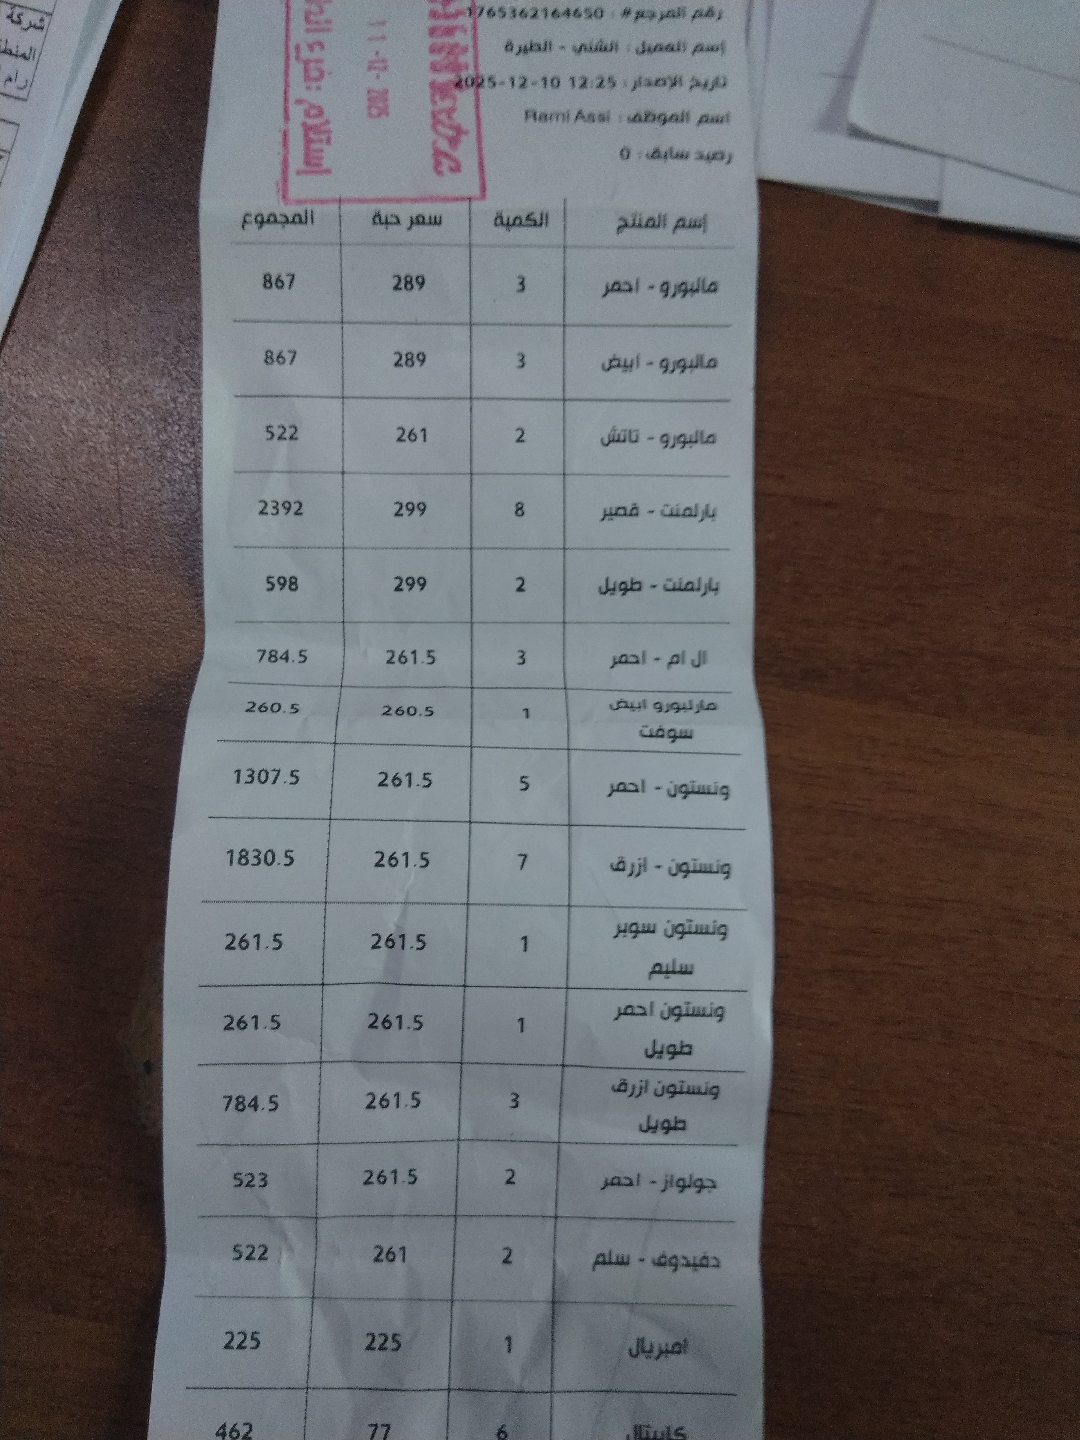 شركة
المنطق
رام
رقم المرجع# : 1765362164650
إسم العميل : الشني - الطيرة
تاريخ الإصدار : 12:25 10-12-2025
اسم الموظف : Rami Assi
رصيد سابق : 0
11-12-2025
إستلام
إسم المنتج الكمية سعر حبة المجموع
مالبورو - احمر 3 289 867
مالبورو - ابيض 3 289 867
مالبورو - تاتش 2 261 522
بارلمنت - قصير 8 299 2392
بارلمنت - طويل 2 299 598
ال ام - احمر 3 261.5 784.5
مارلبورو ابيض 1 260.5 260.5
سوفت
ونستون - احمر 5 261.5 1307.5
ونستون - ازرق 7 261.5 1830.5
ونستون سوبر 1 261.5 261.5
سليم
ونستون احمر 1 261.5 261.5
طويل
ونستون ازرق 3 261.5 784.5
طويل
جولواز - احمر 2 261.5 523
دفيدوف - سلم 2 261 522
امبريال 1 225 225
كابيتال 6 77 462